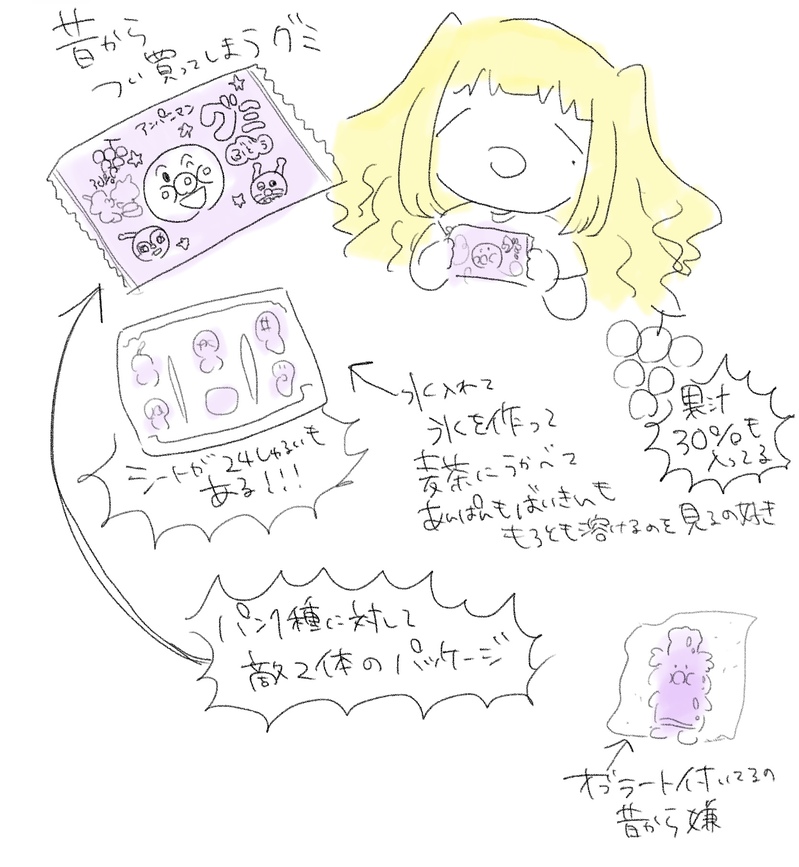 昔から
つい買ってしまうグミ
アンパンマン
グミ
ぶどう
30%
果汁
30%も
入ってる
氷入れて
氷を作って
麦茶にうかべて
あんぱんもばいきんも
もろとも溶けるのを見るの好き
シートが24しゅるいも
ある!!!
パン1種に対して
敵2体のパッケージ
オブラート付いてるの
昔から嫌